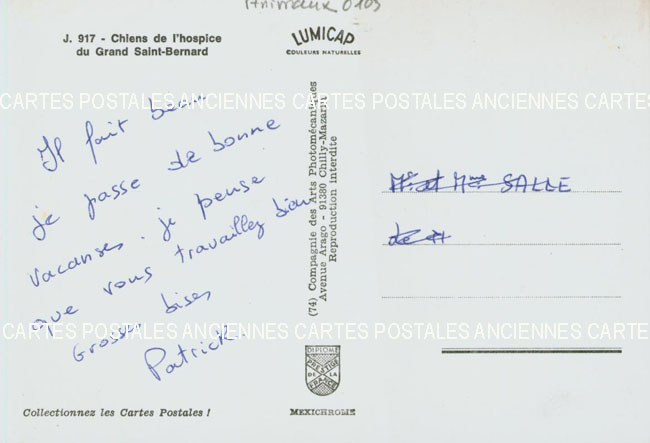 Animaux 0109
J. 917 - Chiens de l'hospice
du Grand Saint-Bernard
LUMICAP
COULEURS NATURELLES
Il fait beau
je passe de bonne
vacanses. je pense
que vous travaillez bien
Grosses bises
Patrick.
CARTES POSTALES ANCIENNES CARTES POSTALES ANCIENNES CARTES
(74) Compagnie des Arts Photomécaniques
Avenue Arago - 91380 Chilly-Mazarin
Reproduction interdite
Mr et Mme SALLE
de
CARTES POSTALES ANCIENNES CARTES POSTALES ANCIENNES CARTE
DIPLOME
PRESTIGE
DE LA
FRANCE
MEXICHROME
Collectionnez les Cartes Postales !